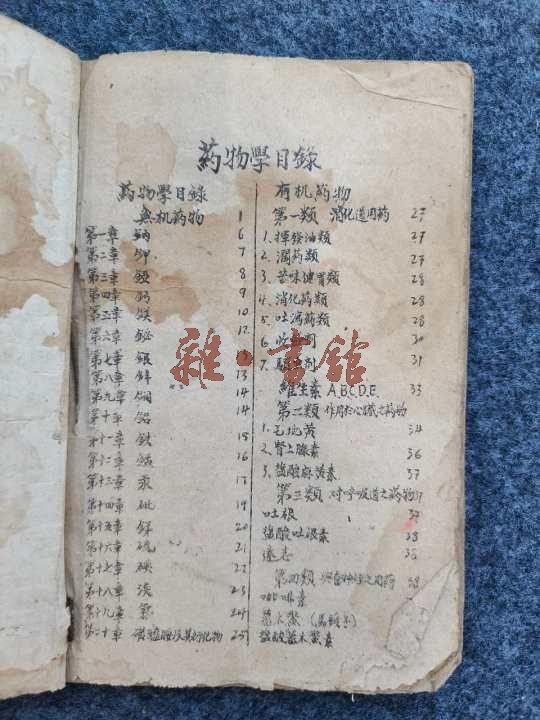 药物學目錄
药物學目錄
無机药物 1
第一章 鈉 6
第二章 钾 7
第三章 8
第四章 鈣 9
第五章 鎂 10
第六章 鉍 12
第七章 銀
第八章 鋅 13
第九章 銅 14
第十章 鋁 14
第十一章 鉄 15
第十二章 16
第十三章 汞 17
第十四章 砒 19
第十五章 銻 20
第十六章 硫 21
第十七章 碘 22
第十八章 溴 23
第十九章 氯 24
第二十章 及其衍化物 25
有机药物
第一類 消化道用药 27
1. 揮發油類 27
2. 潤药類 27
3. 苦味健胃類 28
4. 消化药類 28
5. 吐瀉药類 28
6. 收斂剂 30
7. 驅虫剂 31
維生素 A.B.C.D.E. 33
第二類 作用於心臟之药物
1. 毛地黄 34
2. 腎上腺素 36
3. 鹽酸麻黄素 37
第三類 对呼吸道之药物 37
吐根 37
鹽酸吐根素 38
遠志 38
第四類 兴奋神经之用药 38
咖啡素
鹽酸番木鱉素
雜·書館